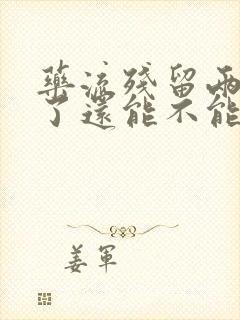 藥流殘留兩
了還能不能
姜軍